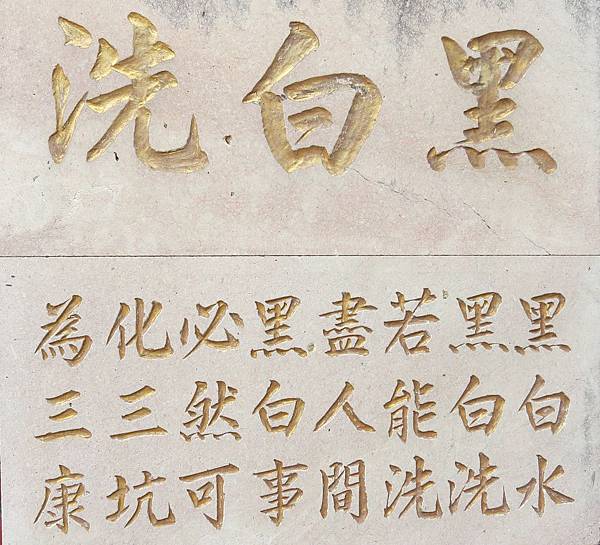 黑白洗
黑白水
黑白洗
若能洗
盡人間
黑白事
必然可
化三坑
為三康